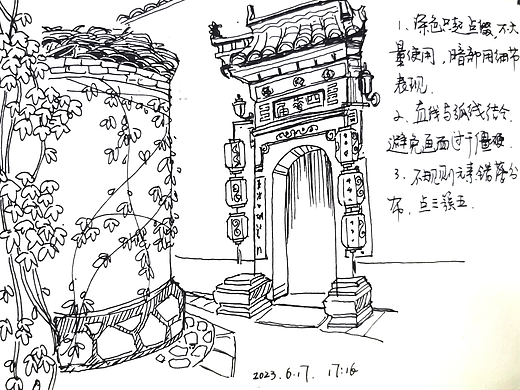 1、深色只起点缀,不大
量使用,暗部用细节
表现.
2、直线与弧线结合,
避免画面过于僵硬.
3、不规则元素错落分
布,点三簇五.
2023.6.17. 17:16